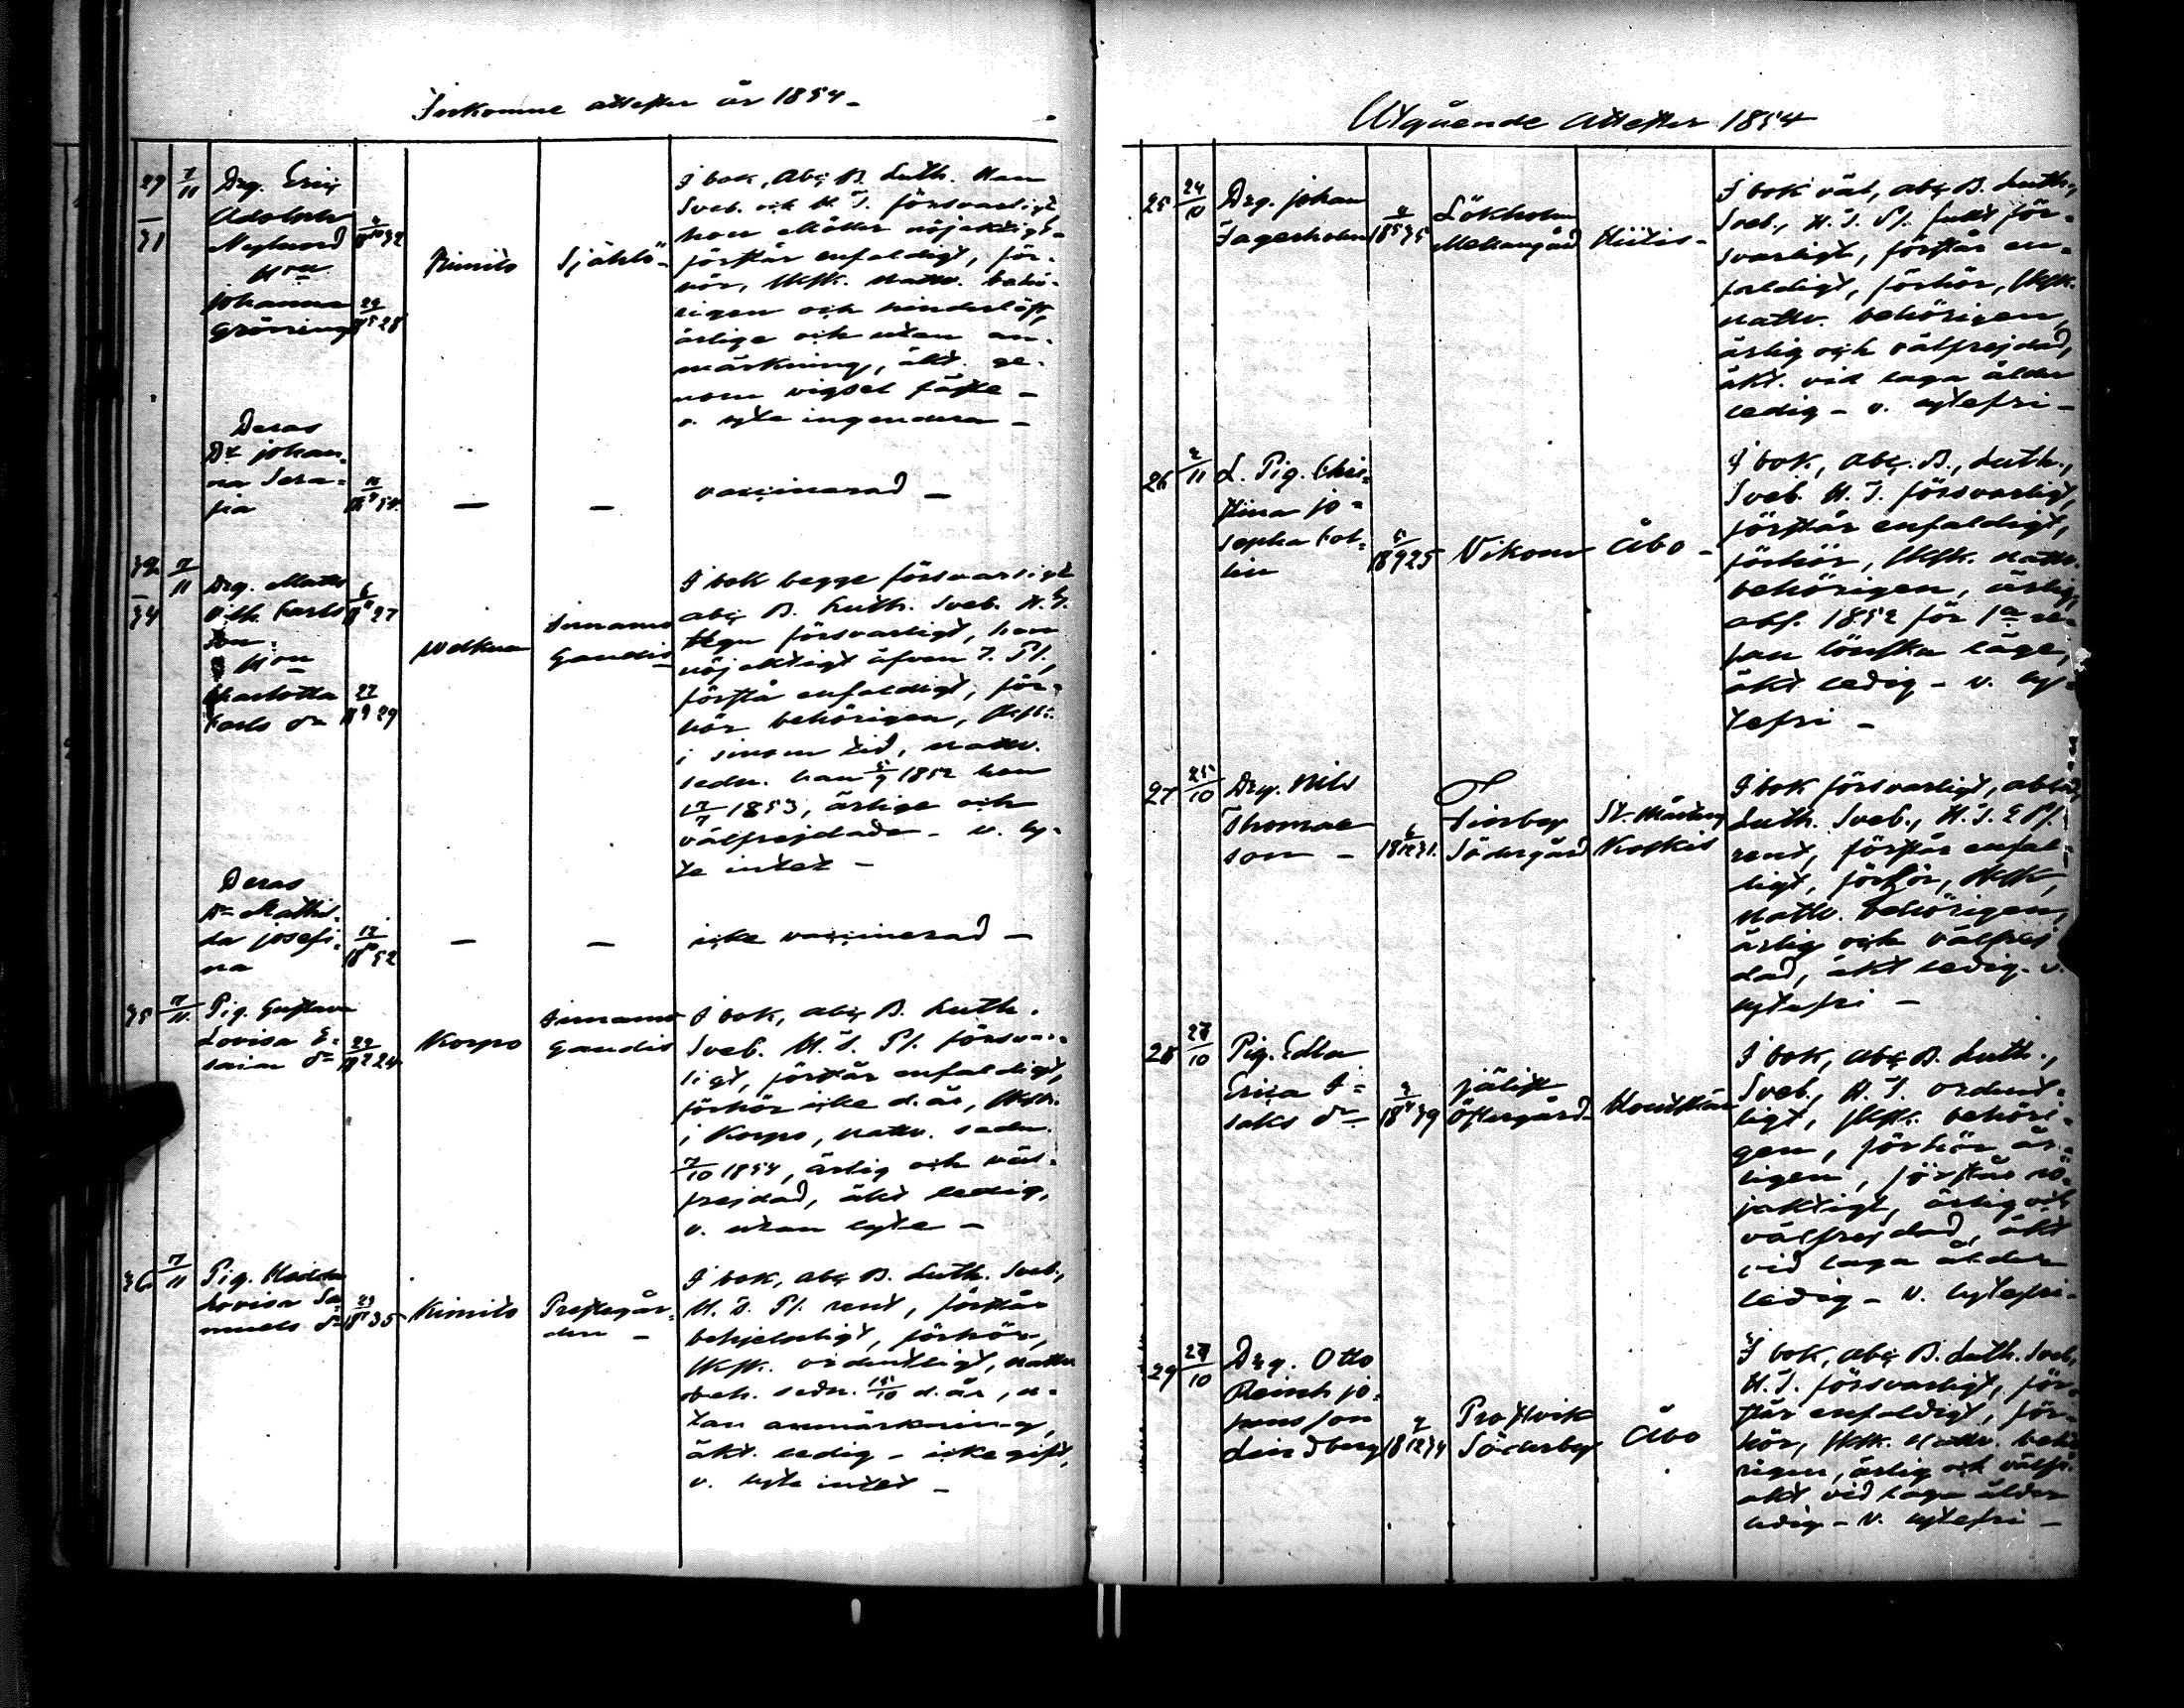 Inkomne attester år 1854 –
29
–
31
7/11
Drg. Eric
Adolph
Nyglund
Hon
Johanna
Gröning
29/18 5 28
Kimito
Själö –
I bok, Abc B. Luth. Han
Sveb. och H. T. försvarligt,
hon Möller nöjaktigt –
förstår enfaldigt, för-
hör, Skft. nattv. behö-
rigen och hinderlöst,
ärlige och utan an-
märkning, äkt. ge-
nom vigsel fäste –
v. lyte ingendera –
Deras
Dr Johan-
na Sera-
fia
–
–
vaccinerad –
32
–
34
7/11
Drg. Matts
Vilh. Carls
son
Hon
Charlotta
Carls dr
6/18 27
27/18 9 29
Gandis
I bok begge försvarligt
abc B. Luth. Sveb. H. T.
försvarligt, hon
nöjaktigt äfven T. Pl.
förstå enfaldigt, för-
hör behörigen, Skft.
i sinom tid, nattv.
sedn. han 5/9 1852 hon
17/7 1853, ärlige och
välfrejdade – v. ly-
te intet –
Deras
Dr Mathil-
da Josefi-
na
17/18 10 52
–
–
icke vaccinerad –
35
7/11
Pig. Gustava
Lovisa E-
saias dr
22/18 2 24
Korpo
Gandis
I bok, abc B. Luth.
Sveb. H. T. Pl. försvar-
ligt, förstår enfaldigt,
förhör icke d. år, Skft.
i Korpo, nattv. sedn.
7/10 1854, ärlig och väl-
frejdad, äkt ledig,
v. utan lyte –
36
7/11
Pig. Hedda
Lovisa Sa-
muels dr
29/18 11 35
Kimito
Prestegår-
den –
I bok, abc B. Luth. Sveb.,
H. T. Pl. rent, förstår
behjelpligt, förhör,
Skft. ordentligt, nattv
beh. sedn. 15/10 d. år, u-
tan anmärkning,
äkt. ledig – icke gift,
v. lyte intet –
Utgående Attester 1854
25
24/10
Drg. Johan
Fagerholm
4/18 5 35
Lökholm
Mellangård
Hiitis –
I bok väl, abc B. Luth.,
Sveb., H. T. Pl. fullt för-
svarligt, förstår en-
faldigt, förhör, Skft.
nattv. behörigen,
ärlig och välfrejdad,
äkt. vid laga ålder
ledig – v. lytefri –
26
2/11
L. Pig. Chri-
stina Jo-
sepha Col-
lin
5/18 9 25
Vikom
Åbo –
I bok, abc. B., Luth.,
Sveb. H. T. försvarligt,
förstår enfaldigt,
förhör, Skft. nattv.
behörigen, ärlig,
abs. 1852 för 1a re-
san lönska läge,
äkt ledig – v. ly-
tefri –
27
25/10
Drg. Nils
Thomas
son –
6/18 12 31
Finby
Södergård
St. Mårtens
Koskis
I bok försvarligt, abc B,
Luth. Sveb., H. T. & Pl.
rent, förstår enfal-
ligt, förhör, Skft,
nattv. behörigen,
ärlig och välfrej
dad, äkt ledig. v.
lytefri –
28
27/10
Pig. Edla
Erica I-
saks dr
2/18 4 39
Jälist
Östergård
Houtskär
I bok, abc B. Luth.,
Sveb., H. T. ordent-
ligt, Skft. behöri-
gen, förhör år-
ligen, förstår nö-
jaktigt, ärlig och
välfrejdad, äkt
vid laga ålder
ledig – v. lytefri –
29
27/10
Drg. Otto
Reinh Jo-
hans son
Lindberg
2/18 12 34
Prostvik
Söderby
Åbo
I bok, abc B. Luth. Sveb,
H. T. försvarligt, för-
står enfaldigt, för-
hör, Skft. nattv. behö
rigen, ärlig och välfr.
äkt vid laga ålder
ledig – v. lytefri –